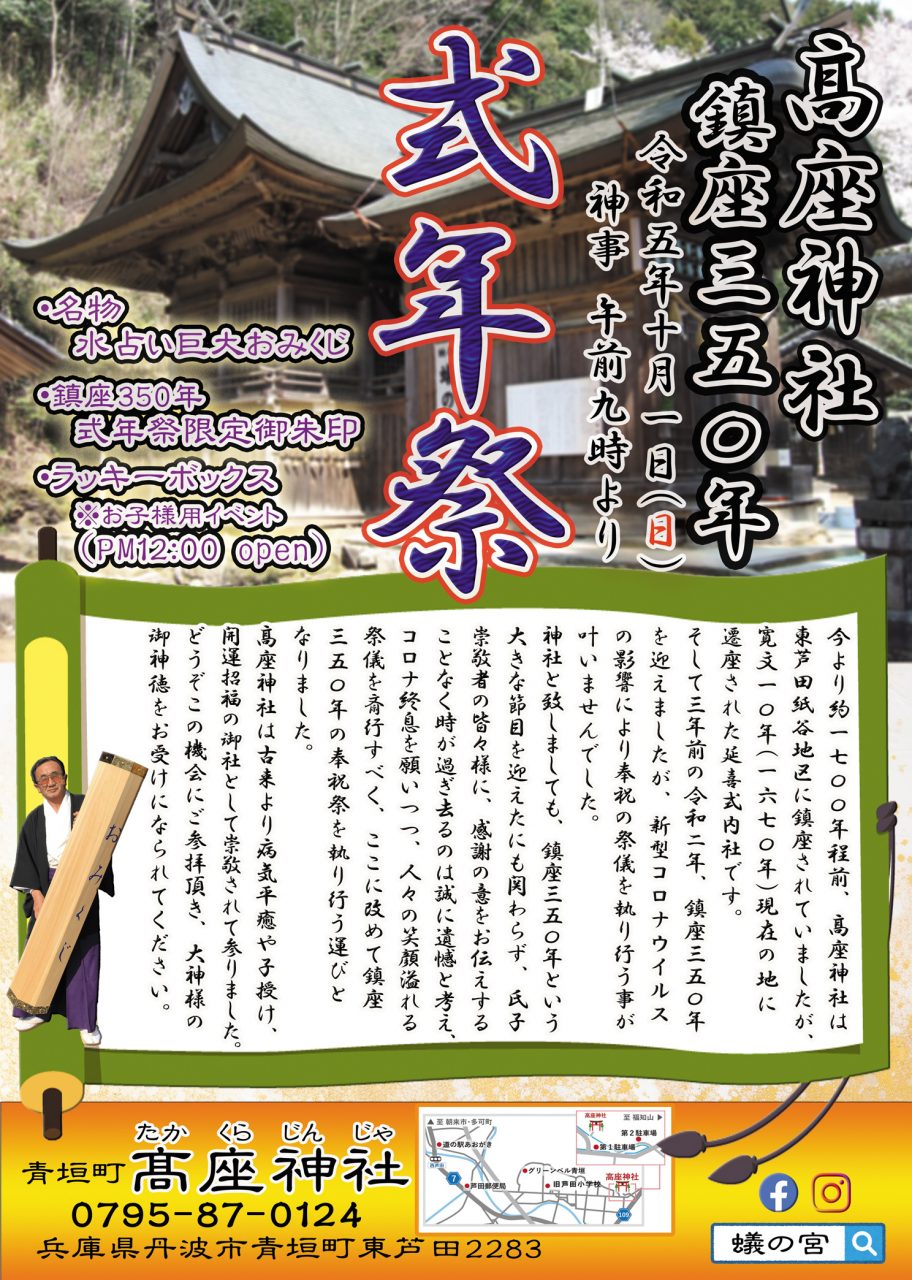 髙座神社
鎮座三五〇年
令和五年十月一日(日)
神事 午前九時より
式年祭
・名物
水占い巨大おみくじ
・鎮座350年
式年祭限定御朱印
・ラッキーボックス
※お子様用イベント
(PM12:00 open)
今より約一七〇〇年程前、髙座神社は
東芦田紙谷地区に鎮座されていましたが、
寛文一〇年(一六七〇年)現在の地に
遷座された延喜式内社です。
そして三年前の令和二年、鎮座三五〇年
を迎えましたが、新型コロナウイルス
の影響により奉祝の祭儀を執り行う事が
叶いませんでした。
神社と致しましても、鎮座三五〇年という
大きな節目を迎えたにも関わらず、氏子
崇敬者の皆々様に、感謝の意をお伝えする
ことなく時が過ぎ去るのは誠に遺憾と考え、
コロナ終息を願いつつ、人々の笑顔溢れる
祭儀を斎行すべく、ここに改めて鎮座
三五〇年の奉祝祭を執り行う運びと
なりました。
髙座神社は古来より病気平癒や子授け、
開運招福の御社として崇敬されて参りました。
どうぞこの機会にご参拝頂き、大神様の
御神徳をお受けになられてください。
おみくじ
たか くら じん じゃ
青垣町 髙座神社
0795-87-0124
兵庫県丹波市青垣町東芦田2283
▲至 朝来市・多可町
道の駅あおがき
西芦田
7
芦田郵便局
グリーンベル青垣
旧芦田小学校
髙座神社
109
髙座神社
至 福知山 ▶
第2駐車場
第1駐車場
蟻の宮